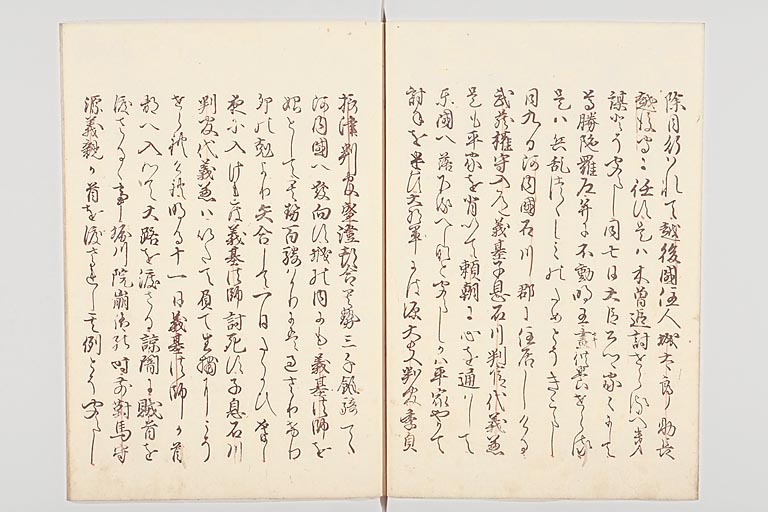 除目行はれて越後國住人城太郎助長
越後守に任す是は木曽追討せらるへき
謀とそ聞えし同七日大臣公卿家々にて
尊勝陀羅尼并に不動明王書供養せらる
是は兵乱つゝしみのためとそきこえし
同九日河内國石川郡に住居しける
武蔵権守入道義基子息石川判官代義兼
是も平家を背いて頼朝に心を通して
東國へ落下るへしなと聞えしかは平家やかて
討手を遣す大将軍には源大夫判官季貞
摂津判官盛澄都合其勢三千餘騎にて
河内國へ發向す城の内にも義基法師を
始として其勢百騎はかりには過さりけり
卯の剋より矢合して一日たゝかひ暮し
夜に入けれは義基法師討死す子息石川
判官代義兼はいた手負て生捕にこそ
せられけれ明る十一日義基法師か首
都へ入つて大路を渡さる諒闇に賊首を
渡さるゝ事堀川院崩御の時前對馬守
源義親か首を渡されし其例とそ聞えし